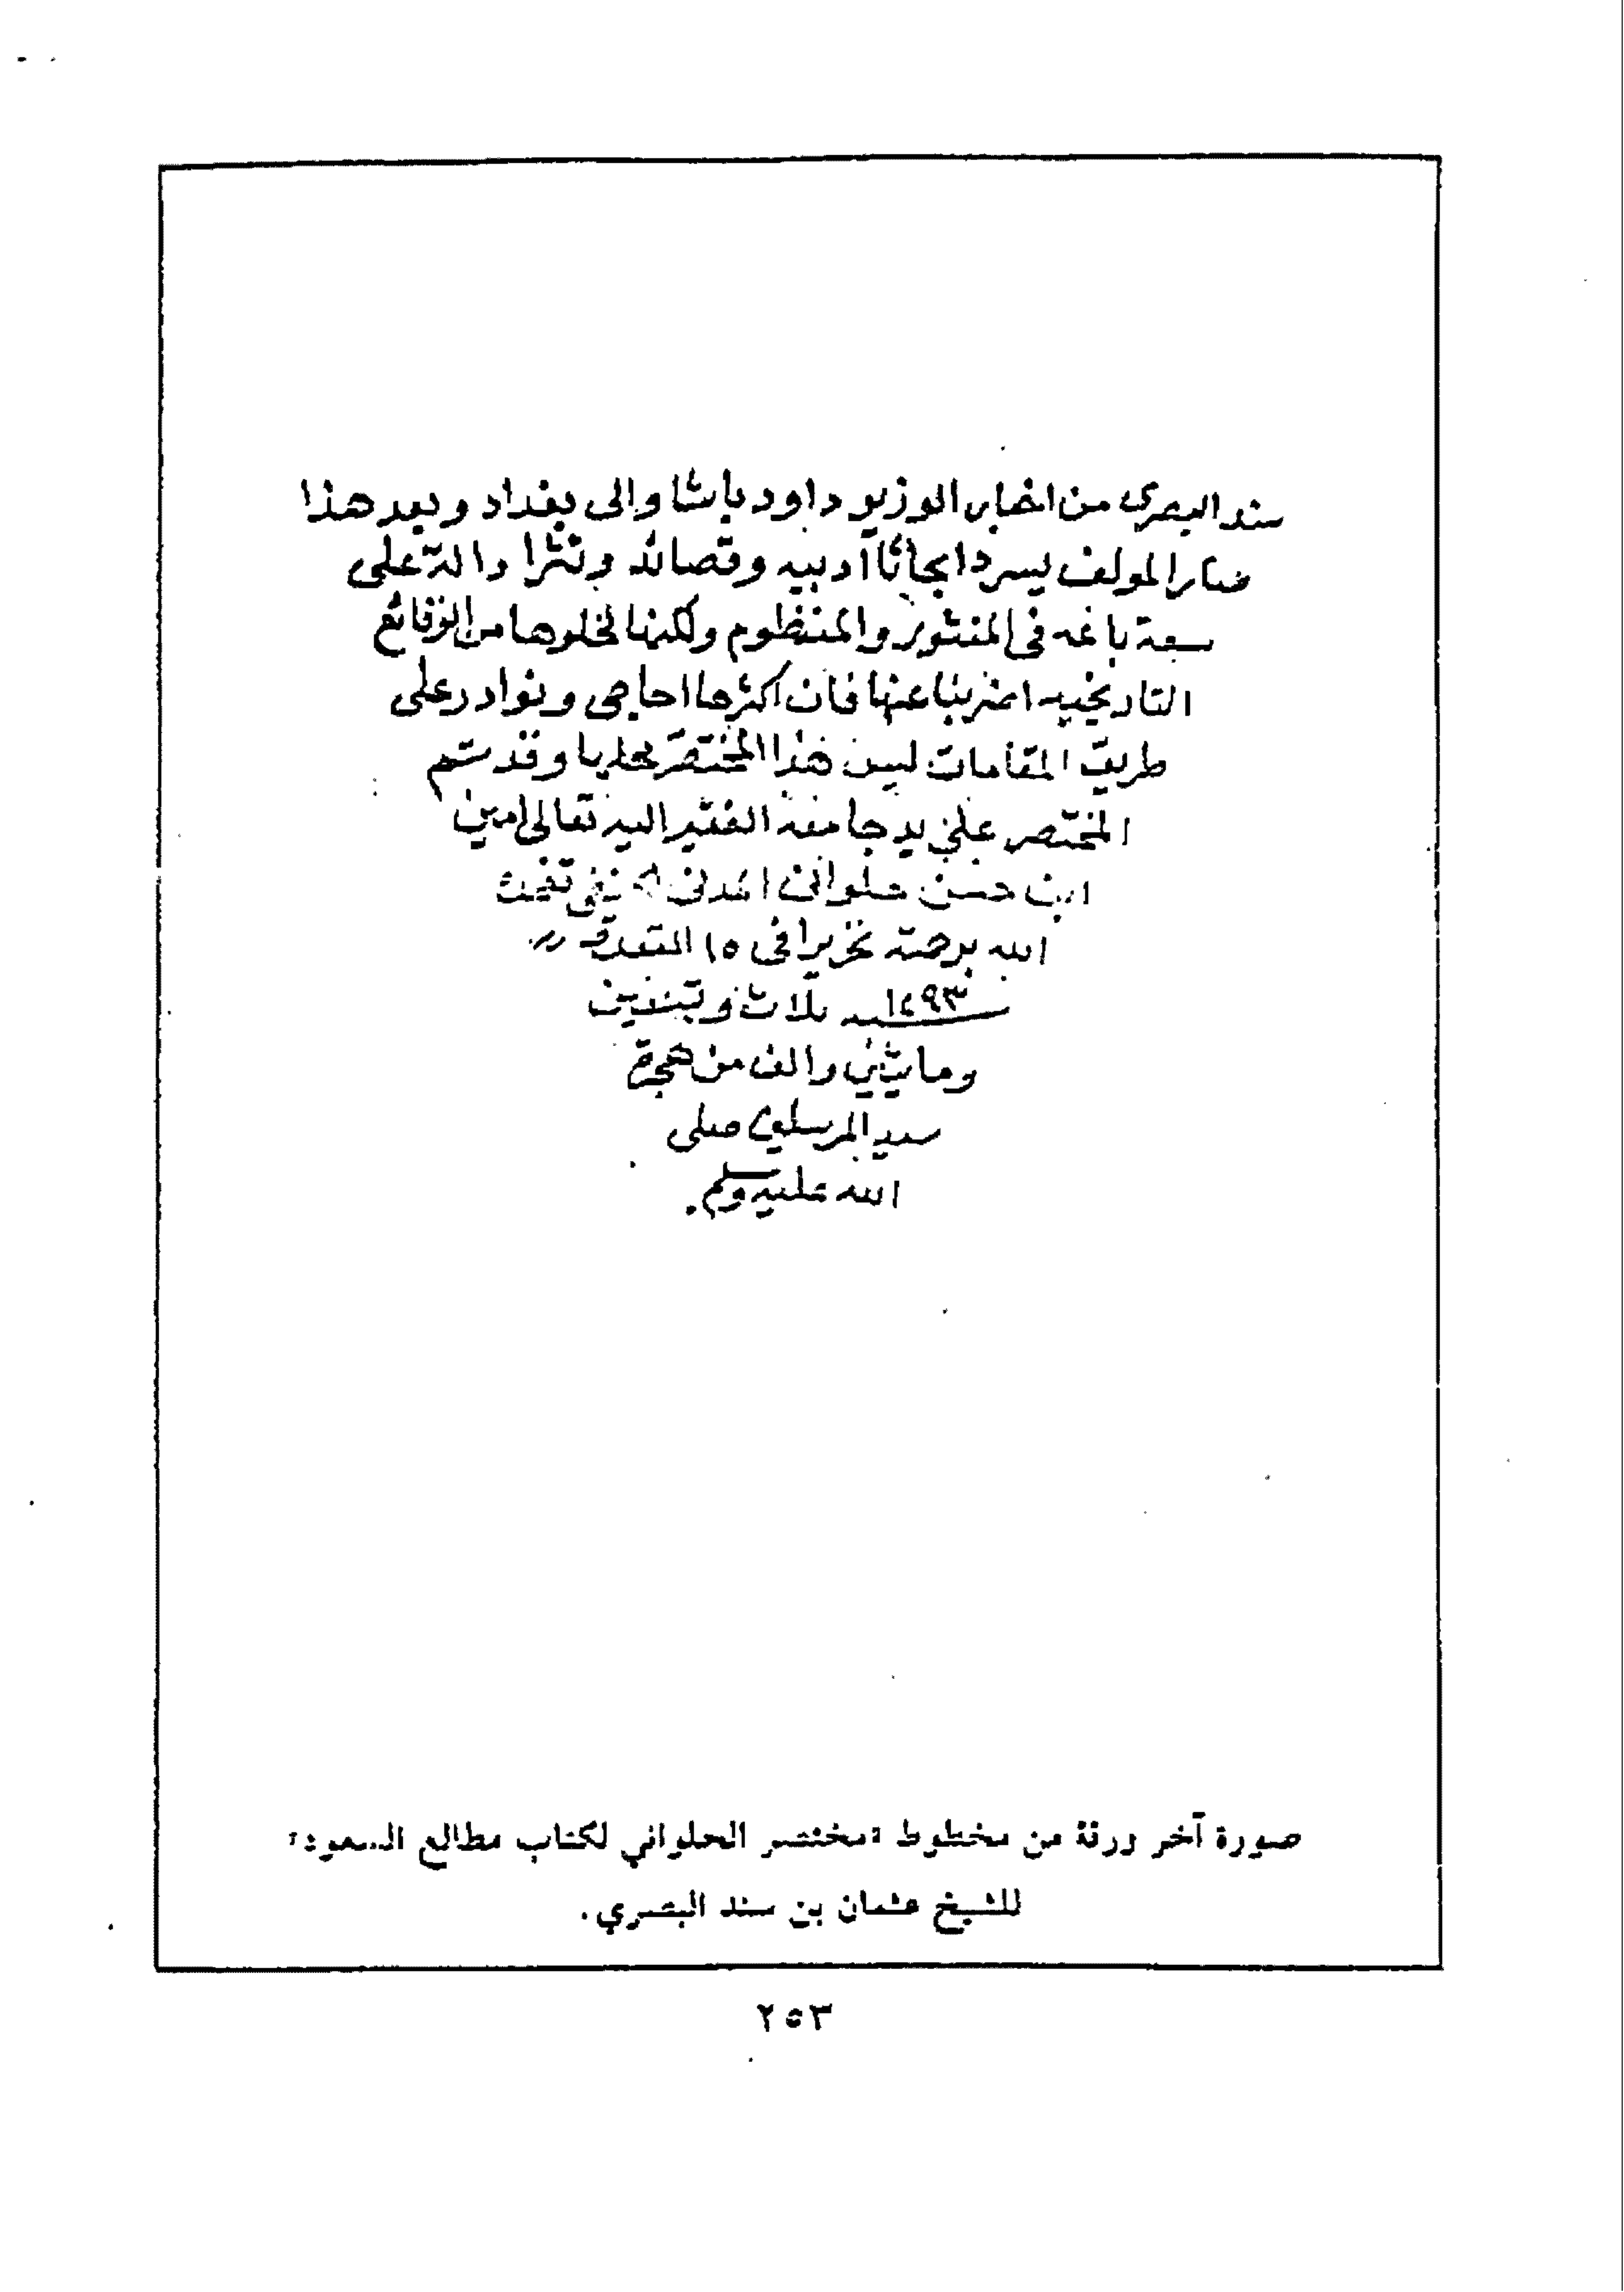 سند البصرى من اخبار الوزير داود باشا والى بغداد وبعد هذا
صار المولف يسرد ابحاثا أدبيه وقصائد ونثرا دالة على
سعة باعه فى المنثور والمنظوم ولكنها لخلوها من الوقائع
التاريخيه اضربنا عنها فان اكثرها احاجى ونوادر على
طريق المقامات ليس هذا المختصر محلها وقد تم
المختصر على يد جامعه الفقير اليه تعالى امين
ابن حسن حلوانى المدنى الحنفى تغمده
الله برحمته تحريرا فى ١٥ القعدة
سنه ١٢٩٣ ثلاث وتسعين
ومايتين والف من هجرة
سيد المرسلين صلى
الله عليه وسلم.
صورة آخر ورقة من مخطوط «مختصر الحلواني لكتاب مطالع السعود»
للشيخ عثمان بن سند البصري.
٢٥٣